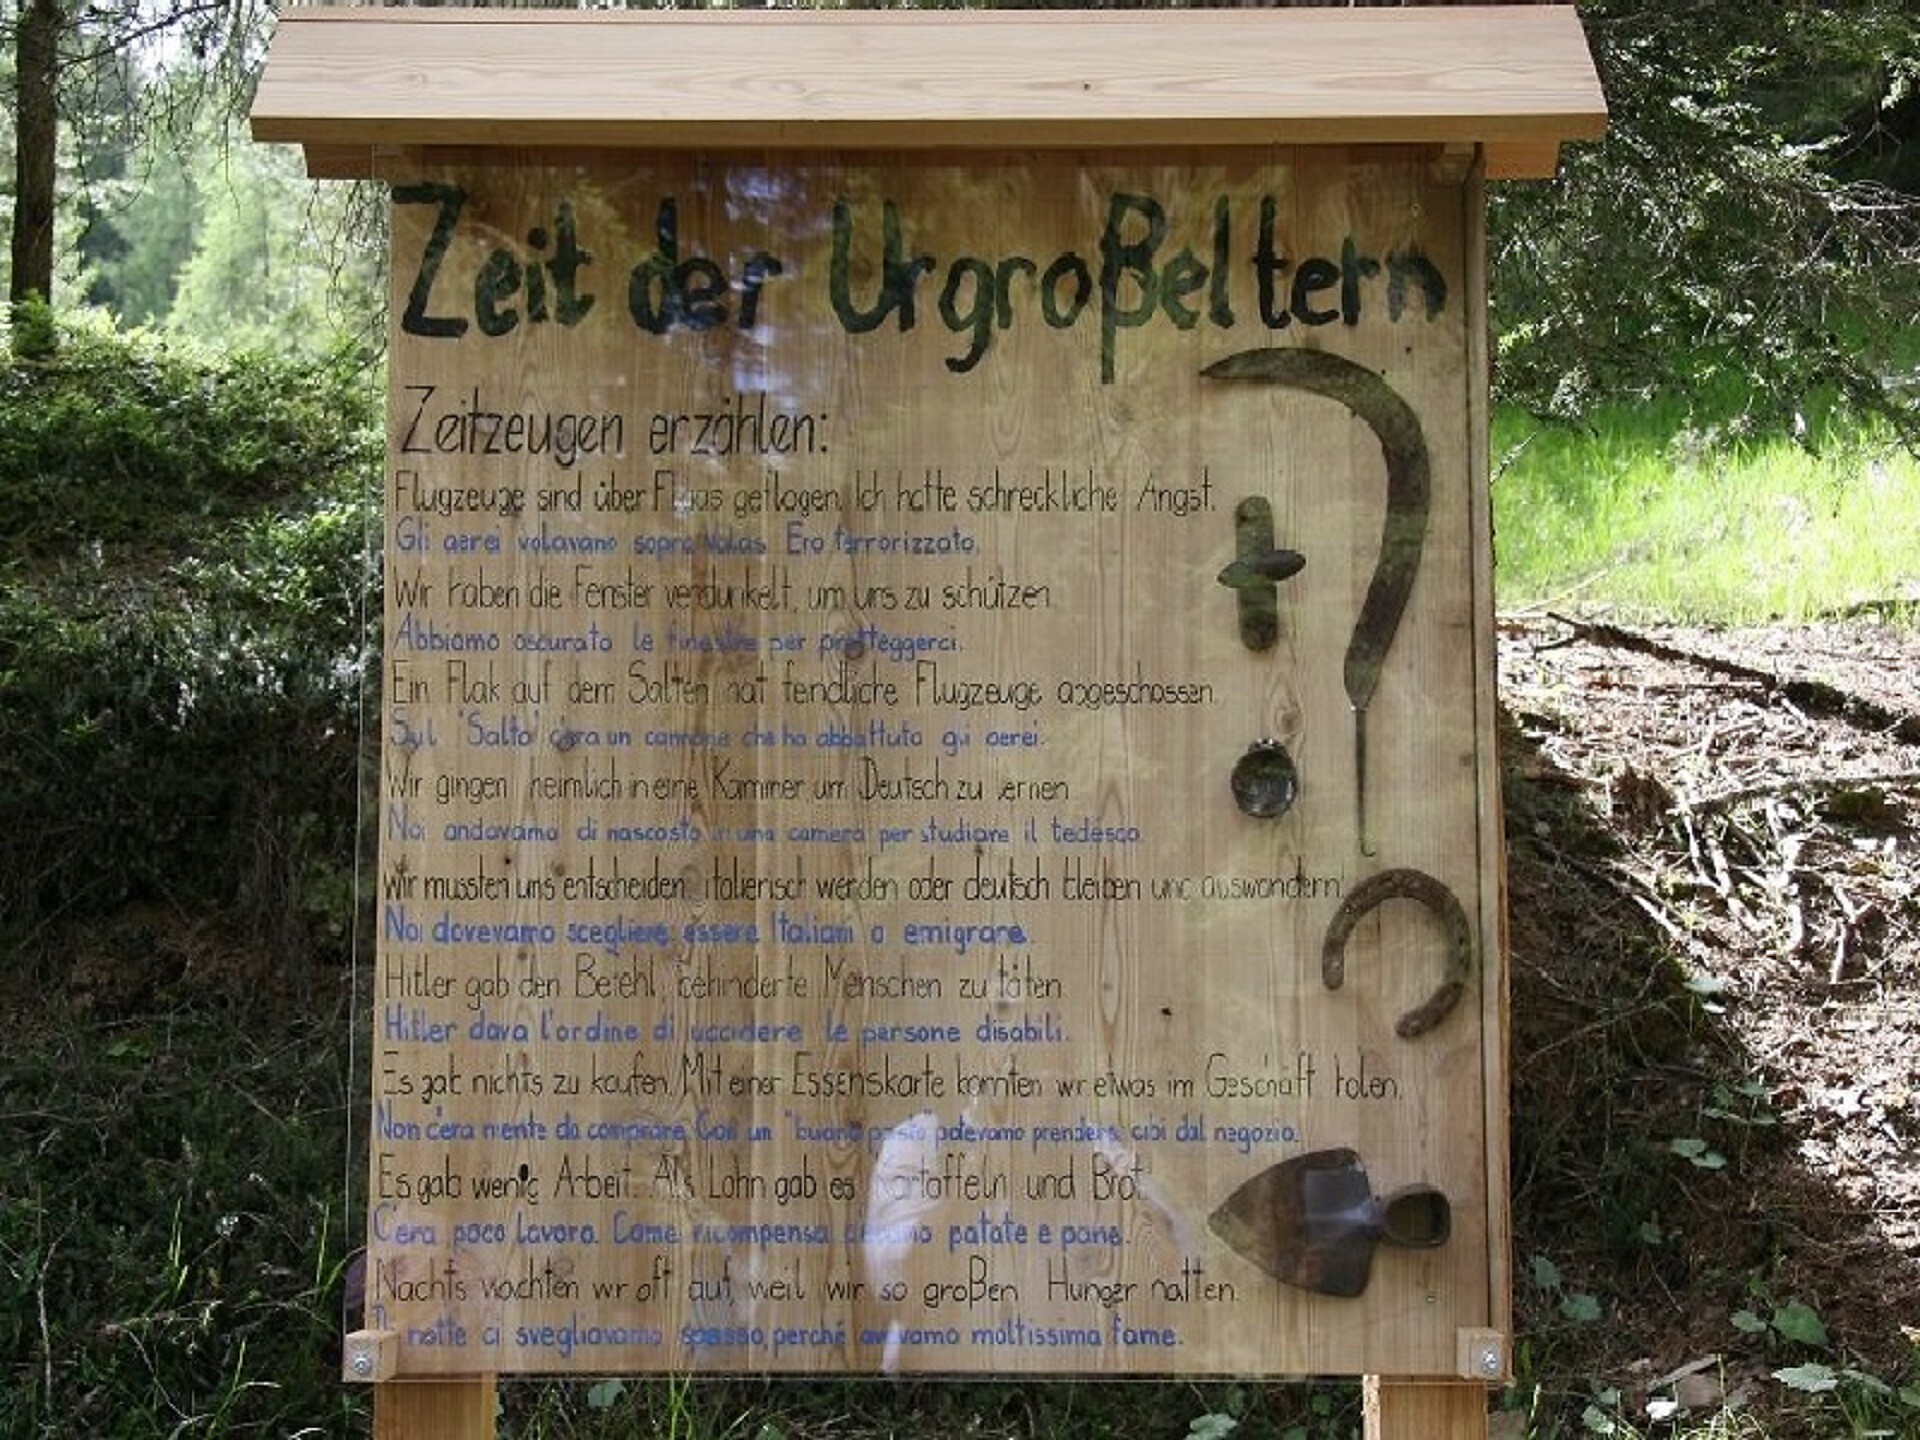 Zeit der Urgroßeltern
Zeitzeugen erzählen:
Flugzeuge sind über Flaas geflogen. Ich hatte schreckliche Angst.
Gli aerei volavano sopra Valas. Ero terrorizzato.
Wir haben die Fenster verdunkelt, um uns zu schützen.
Abbiamo oscurato le finestre per proteggerci.
Ein Flak auf dem Salten hat feindliche Flugzeuge abgeschossen.
Sul "Salto" c'era un cannone che ha abbattuto gli aerei.
Wir gingen heimlich in eine Kammer um Deutsch zu lernen.
Noi andavamo di nascosto in una camera per studiare il tedesco.
Wir mussten uns entscheiden: italienisch werden oder deutsch bleiben und auswandern!
Noi dovevamo scegliere essere Italiani o emigrare.
Hitler gab den Befehl, behinderte Menschen zu töten.
Hitler dava l'ordine di uccidere le persone disabili.
Es gab nichts zu kaufen. Mit einer Essenskarte konnten wir etwas im Geschäft holen.
Non c'era niente da comprare. Con un "buono pasto" potevamo prendere cibi dal negozio.
Es gab wenig Arbeit. Als Lohn gab es Kartoffeln und Brot.
C'era poco lavoro. Come ricompensa patate e pane.
Nachts wachten wir oft auf, weil wir so großen Hunger hatten.
Di notte ci svegliavamo spesso, perché avevamo moltissima fame.